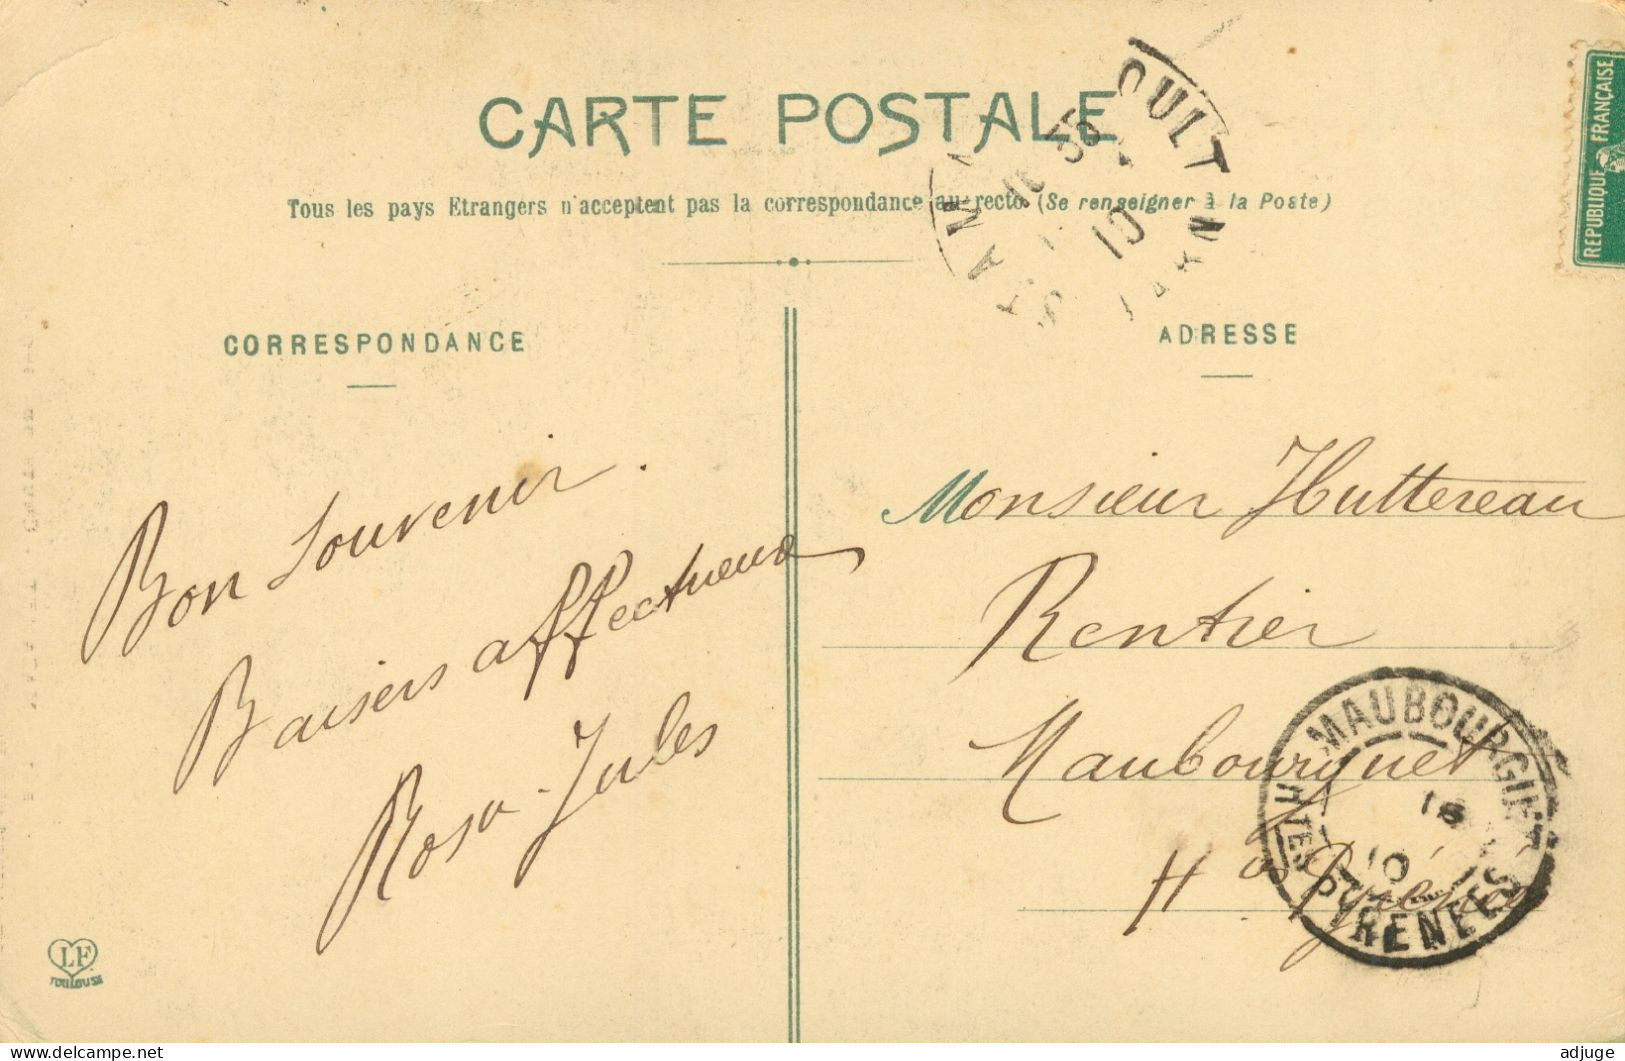 CARTE POSTALE
Tous les pays Etrangers n'acceptent pas la correspondance au recto (Se renseigner à la Poste)
REPUBLIQUE FRANÇAISE
10
CORRESPONDANCE
ADRESSE
Bon Souvenir.
Baisers affectueux
Rosa-Jules
Monsieur Huttereau
Rentier
Maubourguet
Htes Pyrénées
MAUBOURGUET
HTES PYRENEES
10
LF
TOULOUSE
delcampe.net
adjuge